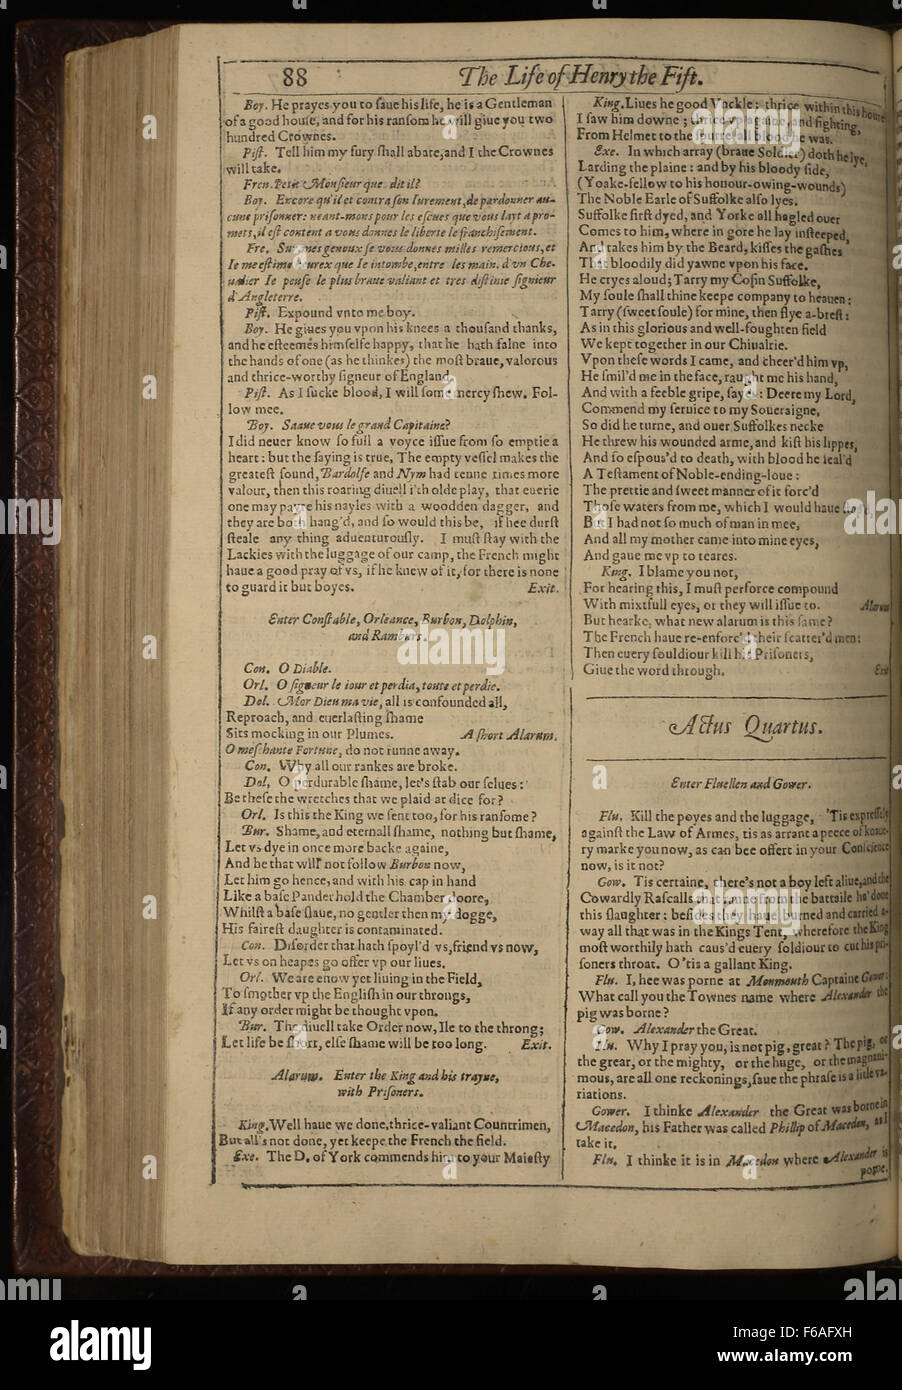 88
The Life of Henry the Fift.
Boy. He prayes you to ſaue his life, he is a Gentleman
of a good houſe, and for his ranſom he will giue you two
hundred Crownes.
Piſt. Tell him my fury ſhall abate, and I the Crownes
will take.
Fren. Petit Monſieur que dit il?
Boy. Encore qu'il et contra ſon Iurement, de pardonner au-
cune priſonner: neant-mons pour les eſcues que vous layt a pro-
mets, il eſt content a vous donnes le liberte le franchiſement.
Fre. Sur mes genoux ſe vous donnes milles remercious, et
Ie me eſtime heurex que Ie intombe, entre les main. d'vn Che-
ualier Ie peuſe le plus braue valiant et tres diſtinie ſignieur
d'Angleterre.
Piſt. Expound vnto me boy.
Boy. He giues you vpon his knees a thouſand thanks,
and he eſteemes himſelfe happy, that he hath falne into
the hands of one (as he thinkes) the moſt braue, valorous
and thrice-worthy ſigneur of England.
Piſt. As I ſucke blood, I will ſome mercy ſhew. Fol-
low mee.
Boy. Saaue vous le grand Capitaine?
I did neuer know ſo full a voyce iſſue from ſo emptie a
heart: but the ſaying is true, The empty veſſel makes the
greateſt ſound, Bardolfe and Nym had tenne times more
valour, then this roaring diuell i'th olde play, that euerie
one may payre his nayles with a woodden dagger, and
they are both hang'd, and ſo would this be, if hee durſt
ſteale any thing aduenturouſly. I muſt ſtay with the
Lackies with the luggage of our camp, the French might
haue a good pray of vs, if he knew of it, for there is none
to guard it but boyes. Exit.
Enter Conſtable, Orleance, Burbon, Dolphin,
and Ramburs.
Con. O Diable.
Orl. O ſigueur le iour et perdia, toute et perdie.
Dol. Mor Dieu ma vie, all is confounded all,
Reproach, and euerlaſting ſhame
Sits mocking in our Plumes. A ſhort Alarum.
O meſchante Fortune, do not runne away.
Con. Why all our rankes are broke.
Dol, O perdurable ſhame, let's ſtab our ſelues:
Be theſe the wretches that we plaid at dice for?
Orl. Is this the King we ſent too, for his ranſome?
Bur. Shame, and eternall ſhame, nothing but ſhame,
Let vs dye in once more backe againe,
And he that will not follow Burbon now,
Let him go hence, and with his cap in hand
Like a baſe Pander hold the Chamber doore,
Whilſt a baſe ſlaue, no gentler then my dogge,
His faireſt daughter is contaminated.
Con. Diſorder that hath ſpoyl'd vs, friend vs now,
Let vs on heapes go offer vp our liues.
Orl. We are enow yet liuing in the Field,
To ſmother vp the Engliſh in our throngs,
If any order might be thought vpon.
Bur. The diuell take Order now, Ile to the throng;
Let life be ſhort, elſe ſhame will be too long. Exit.
Alarum. Enter the King and his trayne,
with Priſoners.
King. Well haue we done, thrice-valiant Countrimen,
But all's not done, yet keepe the French the field.
Exe. The D. of York commends him to your Maieſty
King. Liues he good Vnckle: thrice within this houre
I ſaw him downe; thrice vp againe, and fighting,
From Helmet to the ſpurre, all blood he was.
Exe. In which array (braue Soldier) doth he lye,
Larding the plaine: and by his bloody ſide,
(Yoake-fellow to his honour-owing-wounds)
The Noble Earle of Suffolke alſo lyes.
Suffolke firſt dyed, and Yorke all hagled ouer
Comes to him, where in gore he lay inſteeped,
And takes him by the Beard, kiſſes the gaſhes
That bloodily did yawne vpon his face.
He cryes aloud; Tarry my Coſin Suffolke,
My ſoule ſhall thine keepe company to heauen:
Tarry (ſweet ſoule) for mine, then flye a-breſt:
As in this glorious and well-foughten field
We kept together in our Chiualrie.
Vpon theſe words I came, and cheer'd him vp,
He ſmil'd me in the face, raught me his hand,
And with a feeble gripe, ſayes: Deere my Lord,
Commend my ſeruice to my Soueraigne,
So did he turne, and ouer Suffolkes necke
He threw his wounded arme, and kiſt his lippes,
And ſo eſpous'd to death, with blood he ſeal'd
A Teſtament of Noble-ending-loue:
The prettie and ſweet manner of it forc'd
Thoſe waters from me, which I would haue ſtop'd,
But I had not ſo much of man in mee,
And all my mother came into mine eyes,
And gaue me vp to teares.
King. I blame you not,
For hearing this, I muſt perforce compound
With mixtfull eyes, or they will iſſue to. Alarum
But hearke, what new alarum is this ſame?
The French haue re-enforc'd their ſcatter'd men:
Then euery ſouldiour kill his Priſoners,
Giue the word through. Exit
Actus Quartus.
Enter Fluellen and Gower.
Flu. Kill the poyes and the luggage, 'Tis expreſſely
againſt the Law of Armes, tis as arrant a peece of knaue-
ry marke you now, as can bee offert in your Conſcience
now, is it not?
Gow. Tis certaine, there's not a boy left aliue, and the
Cowardly Raſcalls that ranne from the battaile ha' done
this ſlaughter: beſides they haue burned and carried a-
way all that was in the Kings Tent, wherefore the King
moſt worthily hath caus'd euery ſoldiour to cut his pri-
ſoners throat. O 'tis a gallant King.
Flu. I, hee was porne at Monmouth Captaine Gower:
What call you the Townes name where Alexander the
pig was borne?
Gow. Alexander the Great.
Flu. Why I pray you, is not pig, great? The pig, or
the great, or the mighty, or the huge, or the magnani-
mous, are all one reckonings, ſaue the phraſe is a litle va-
riations.
Gower. I thinke Alexander the Great was borne in
Macedon, his Father was called Phillip of Macedon, as I
take it.
Flu. I thinke it is in Macedon where Alexander is
porne.
alamy
alamy
alamy
alamy
alamy
Image ID: F6AFXH
www.alamy.com